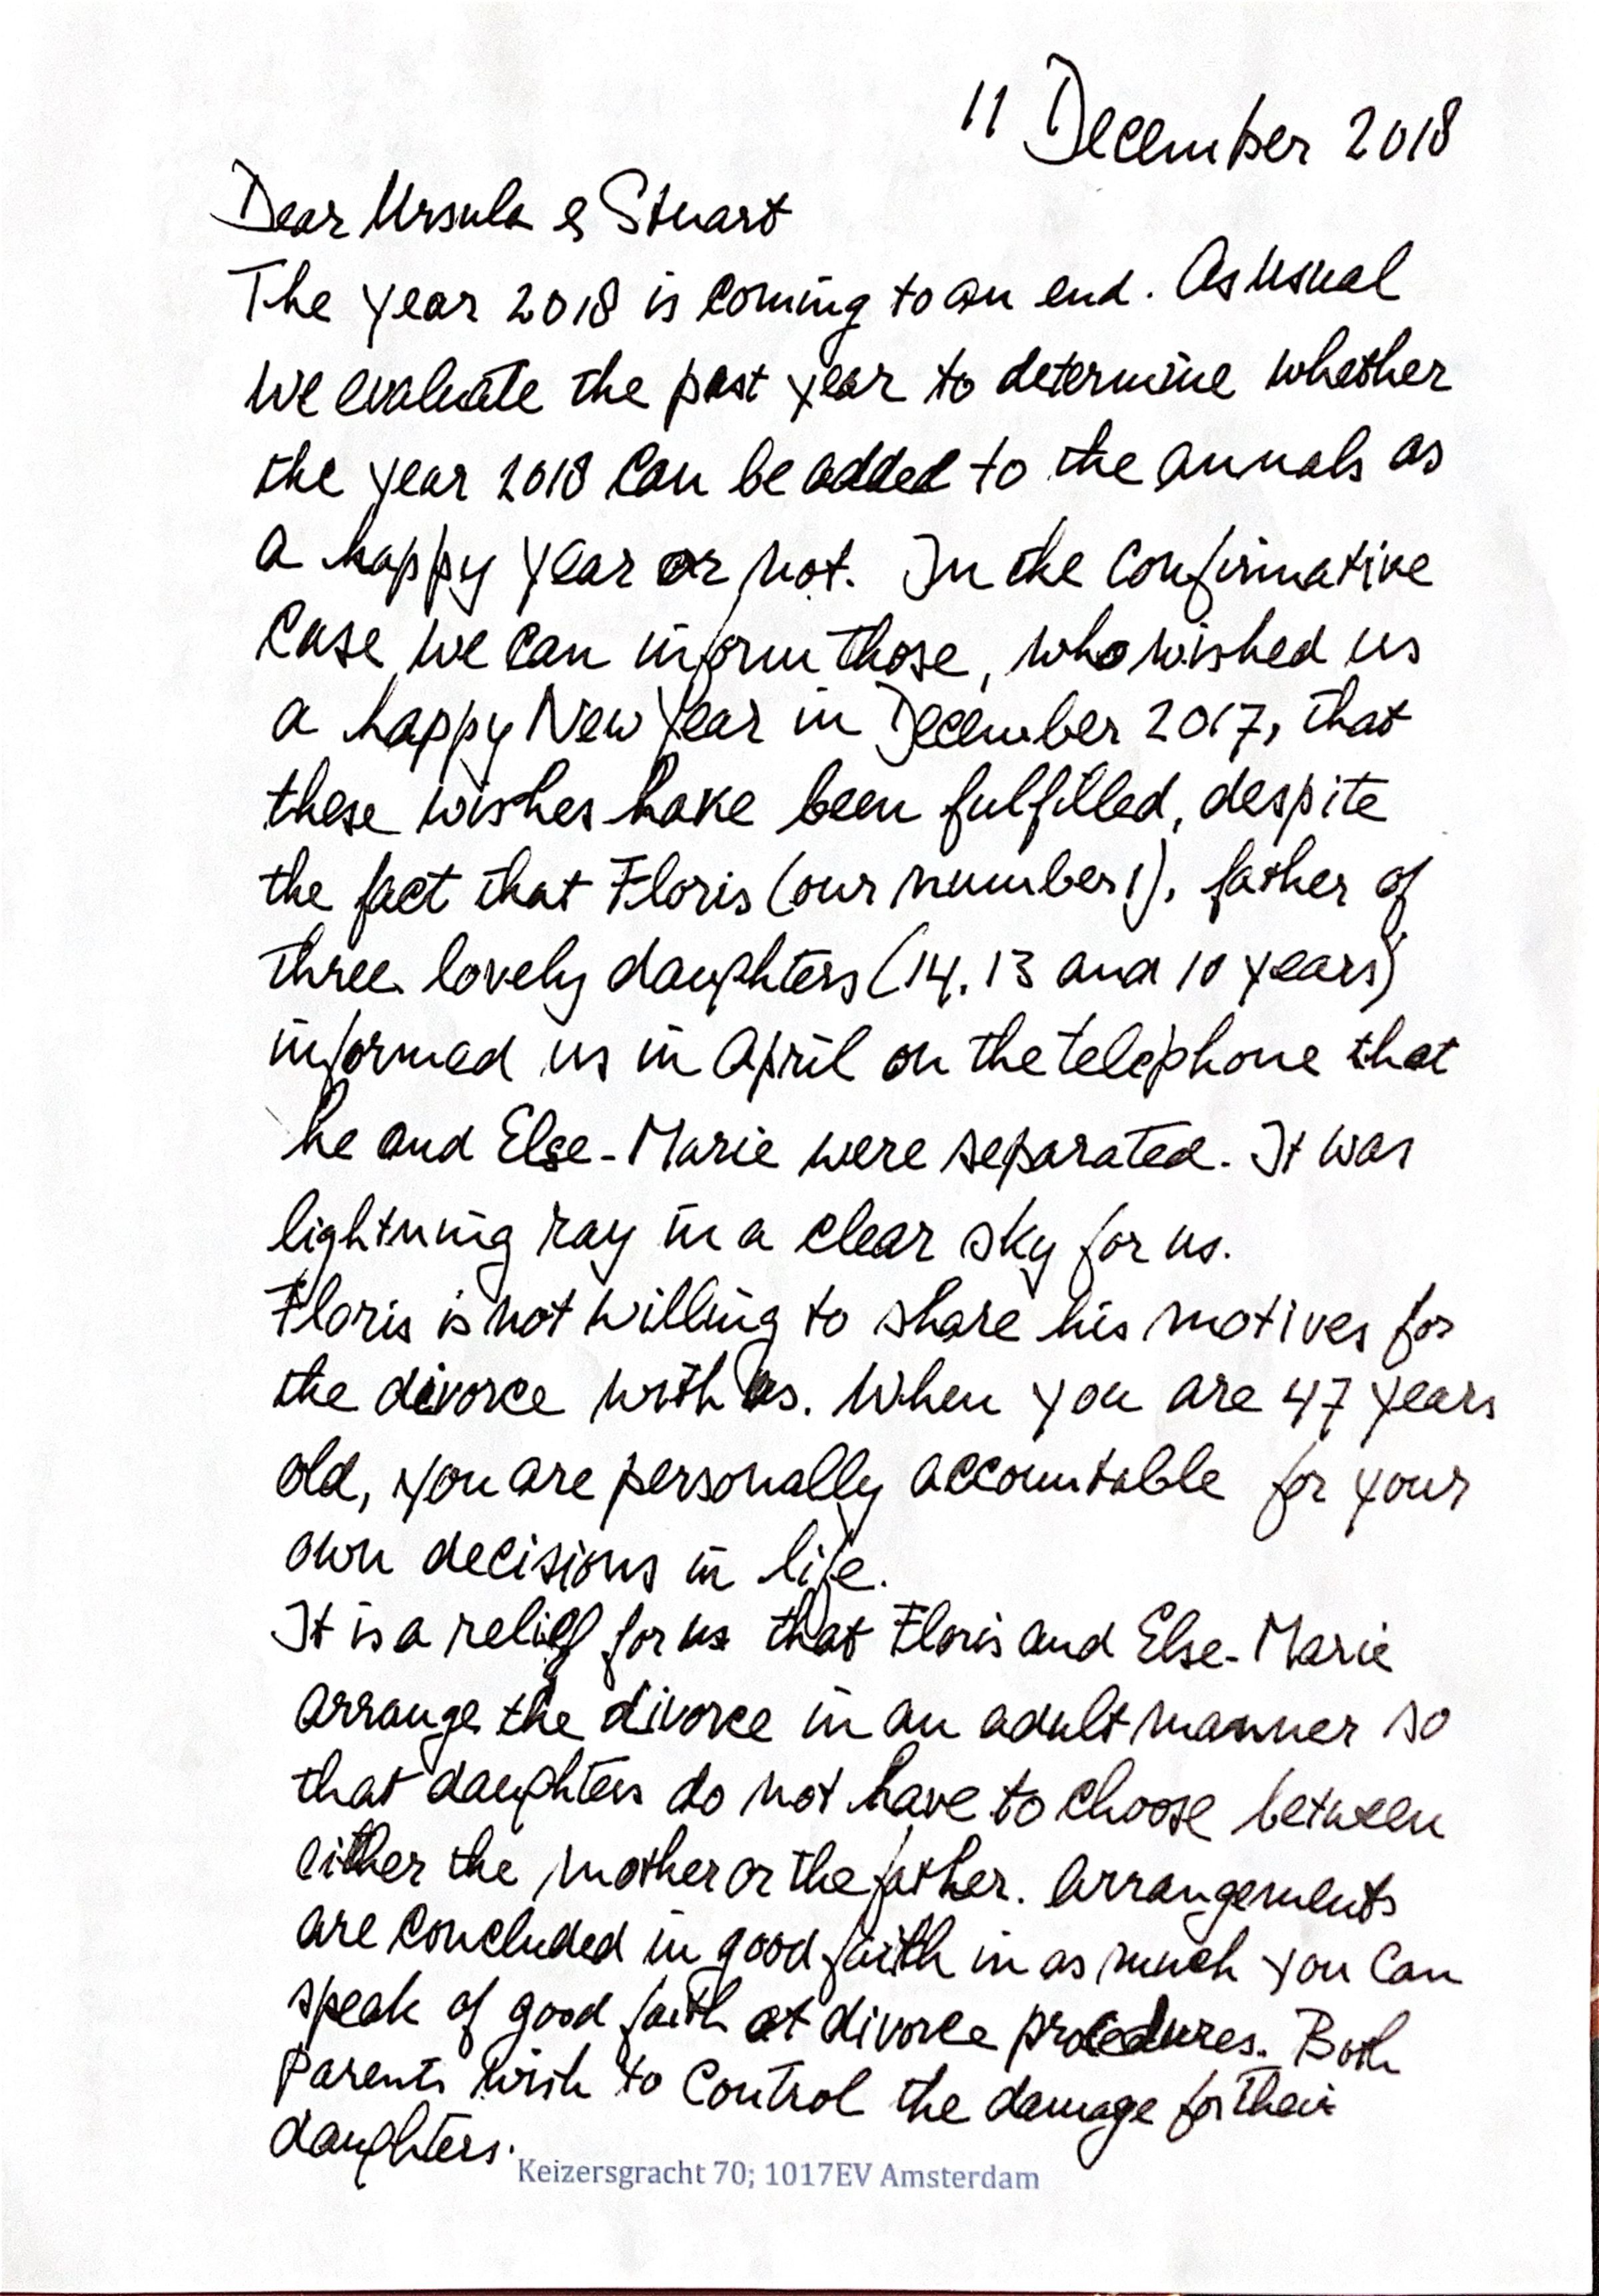 11 December 2018
Dear Ursula & Stuart
The year 2018 is coming to an end. As usual
we evaluate the past year to determine whether
the year 2018 can be added to the annals as
a happy year or not. In the confirmative
case we can inform those, who wished us
a happy New Year in December 2017, that
these wishes have been fulfilled, despite
the fact that Floris (our number 1), father of
three lovely daughters (14, 13 and 10 years)
informed us in April on the telephone that
he and Else-Marie were separated. It was
lightning ray in a clear sky for us.
Floris is not willing to share his motives for
the divorce with us. When you are 47 years
old, you are personally accountable for your
own decisions in life.
It is a relief for us that Floris and Else-Marie
arrange the divorce in an adult manner so
that daughters do not have to choose between
either the mother or the father. Arrangements
are concluded in good faith in as much you can
speak of good faith at divorce procedures. Both
parents wish to control the damage for their
daughters.
Keizersgracht 70; 1017EV Amsterdam